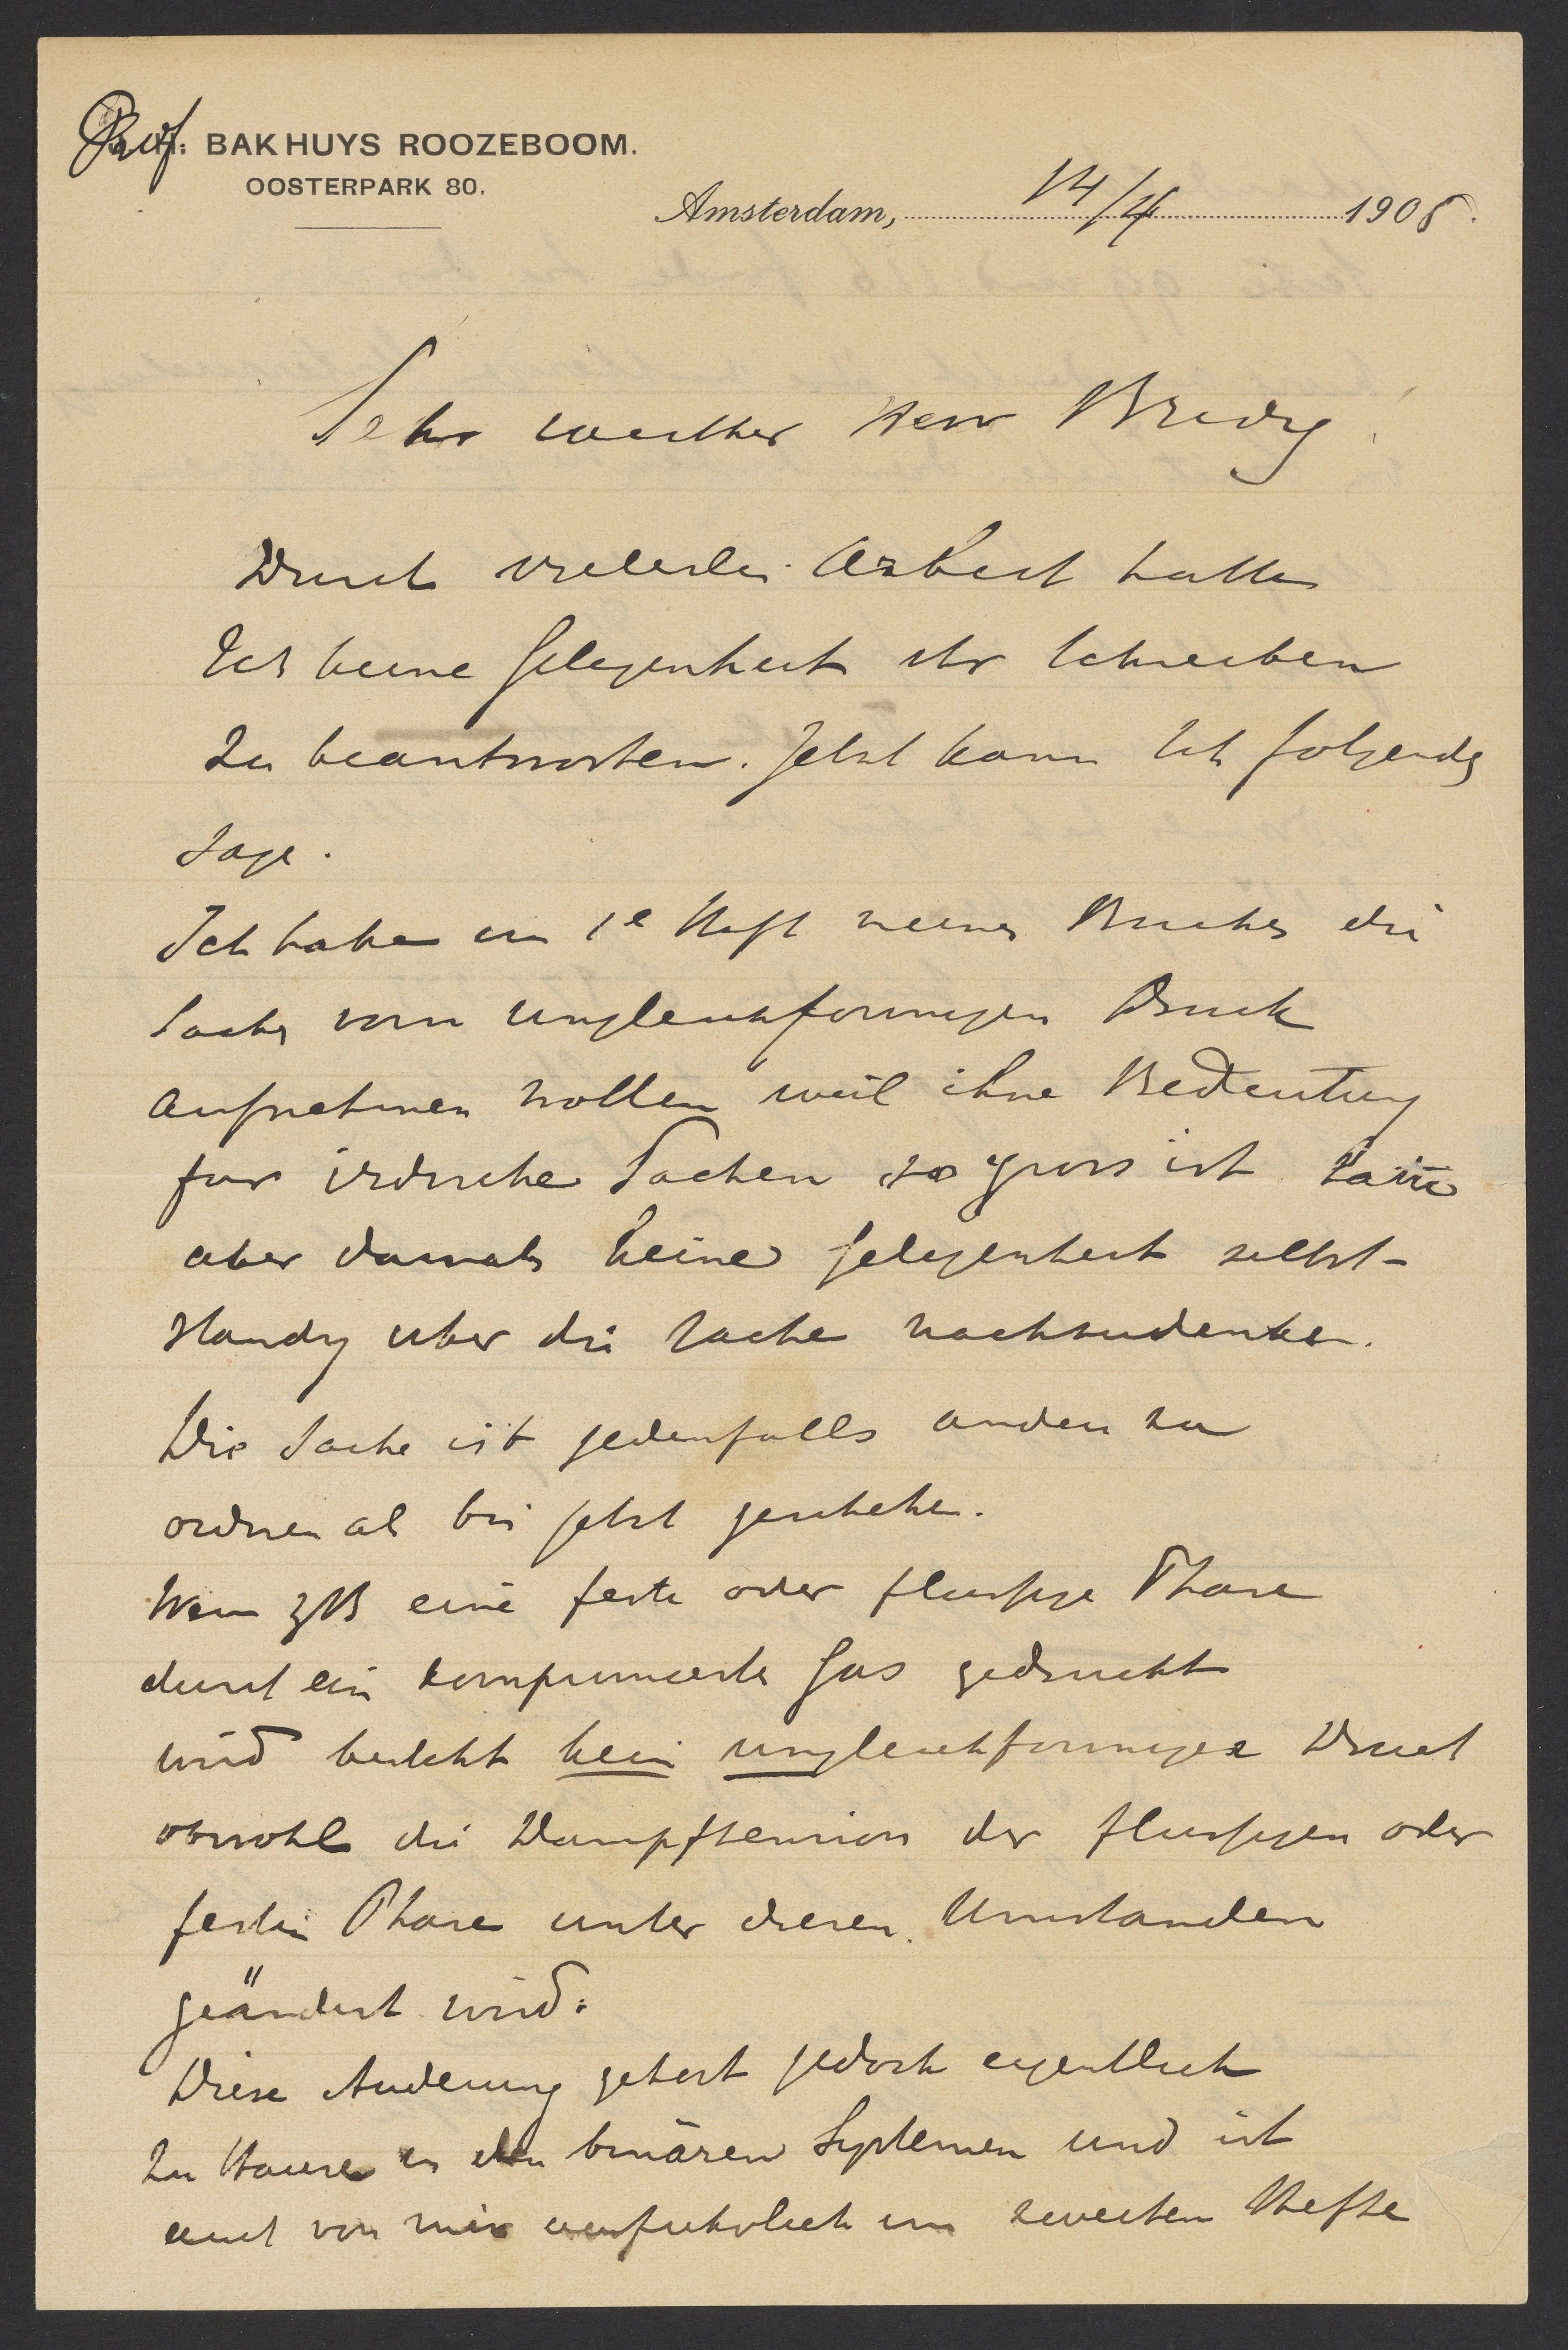 Prof. BAKHUYS ROOZEBOOM.
OOSTERPARK 80.
Amsterdam, 14/4 1905.
Sehr werther Herr
Durch vielerlei Arbeit hatte
Ich keine Gelegenheit ihr Schreiben
zu beantworten. Jetzt kann Ich folgendes
sage.
Ich habe im 1e Heft meines Buches die
Sache vom ungleichformigen Druck
aufnehmen wollen weil ihre Bedeutung
fur irdische Sachen so gross ist
aber damals keine Gelegenheit selbst-
standig uber die Sache nachzudenken.
Die Sache ist jedenfalls anders zu
ordnen als bis jetzt geschehen.
Wenn zB eine feste oder flussige Phase
durch ein komprimierte Gas gedruckt
wird besteht kein ungleichformiger Druck
obwohl die Dampftension der flussigen oder
festen Phase unter diesen Umstanden
geändert wird.
Diese Anderung gehort jedoch eigentlich
zu Hause in den binären Systemen und ist
auch von mir ausfuhrlich im zweiten Hefte